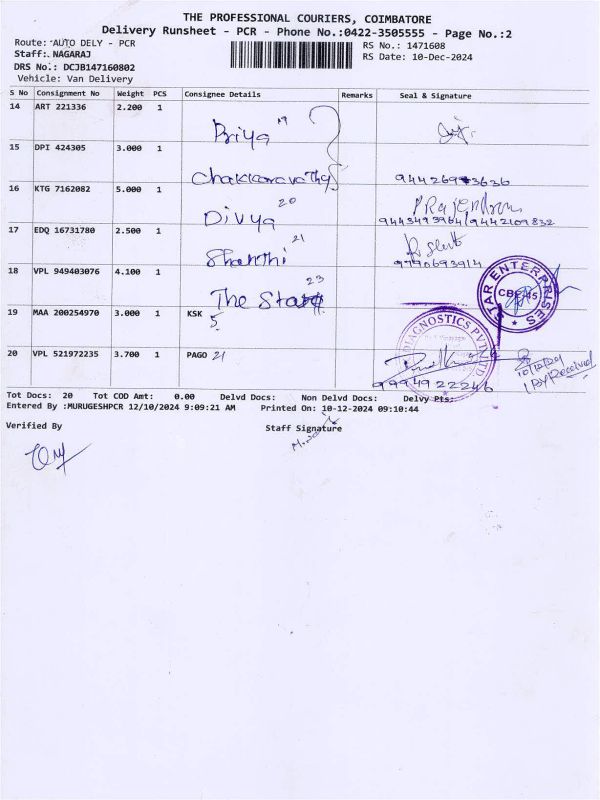 THE PROFESSIONAL COURIERS, COIMBATORE
Delivery Runsheet - PCR - Phone No.:0422-3505555 - Page No.:2
Route: AUTO DELY - PCR
RS No.: 1471608
Staff: NAGARAJ
RS Date: 10-Dec-2024
DRS No.: DCJB147160802
Vehicle: Van Delivery
S No Consignment No Weight PCS Consignee Details Remarks Seal & Signature
14 ART 221336 2.200 1 Priya 19
15 DPI 424305 3.000 1 Chakkaravathy
16 KTG 7162082 5.000 1 Divya 20
9443493964/9442109832
17 EDQ 16731780 2.500 1 Shanthi 21
9790693914
18 VPL 949403076 4.100 1 The 23
STAR ENTERPRISES
CBE-45
19 MAA 200254970 3.000 1 KSK 5
DIAGNOSTICS PVT
20 VPL 521972235 3.700 1 PAGO 21
9994922246
Received
Tot Docs: 20 Tot COD Amt: 0.00 Delvd Docs: Non Delvd Docs: Delvy Pts:
Entered By :MURUGESHPCR 12/10/2024 9:09:21 AM Printed On: 10-12-2024 09:10:44
Verified By
Staff Signature